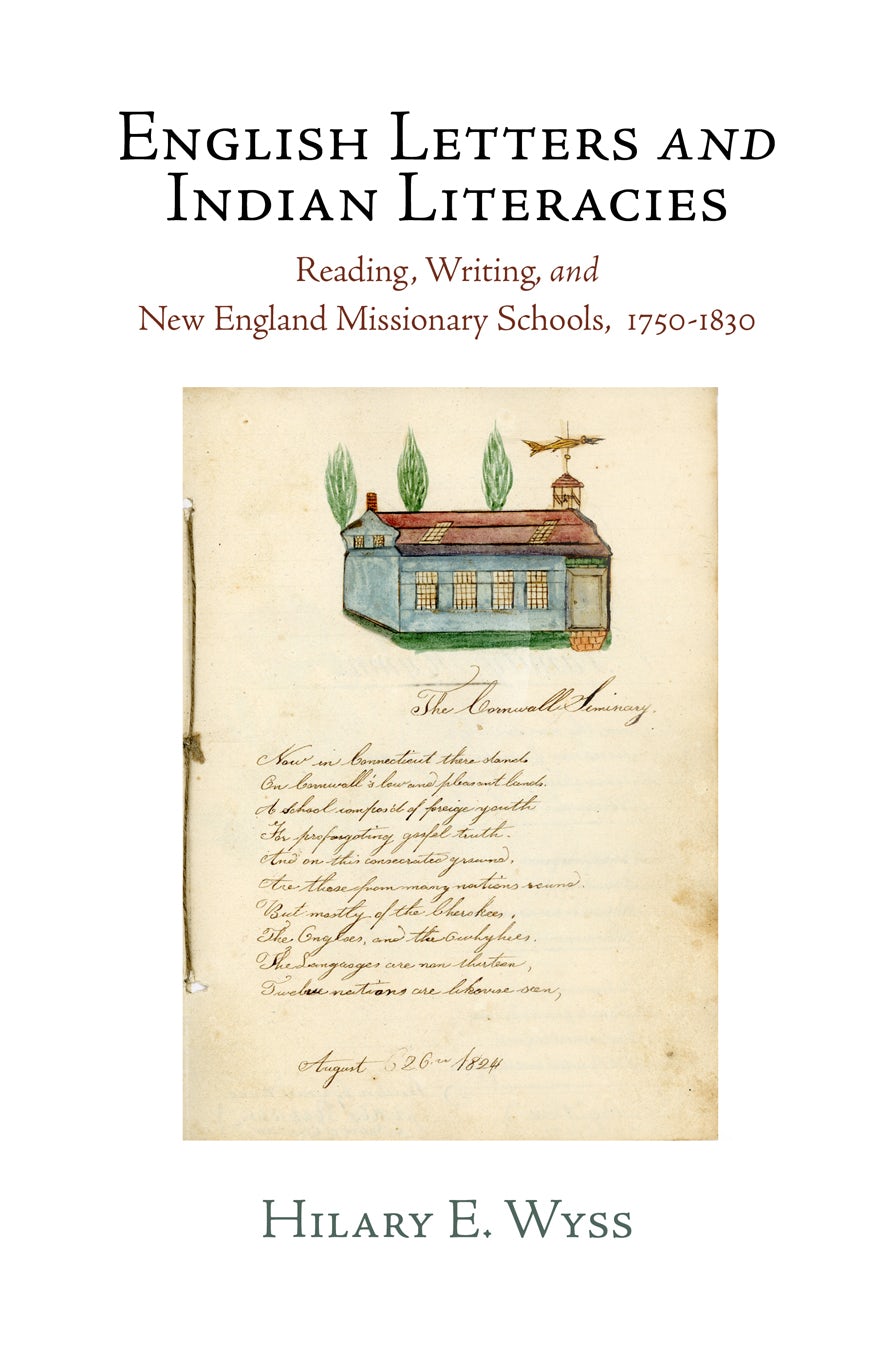 English Letters and
Indian Literacies
Reading, Writing, and
New England Missionary Schools, 1750-1830
The Cornwall Seminary.
Now in Connecticut there stands
On Cornwall's low and pleasant lands.
A school compos'd of foreige youth
For propogating gospel truth.
And on this consecrated ground,
Are those from many nations round.
But mostly of the Cherokees,
The Angloes, and the Owhyhees.
The Languages are non thirteen,
Twelve nations are likewise seen,
August 26 1824
Hilary E. Wyss